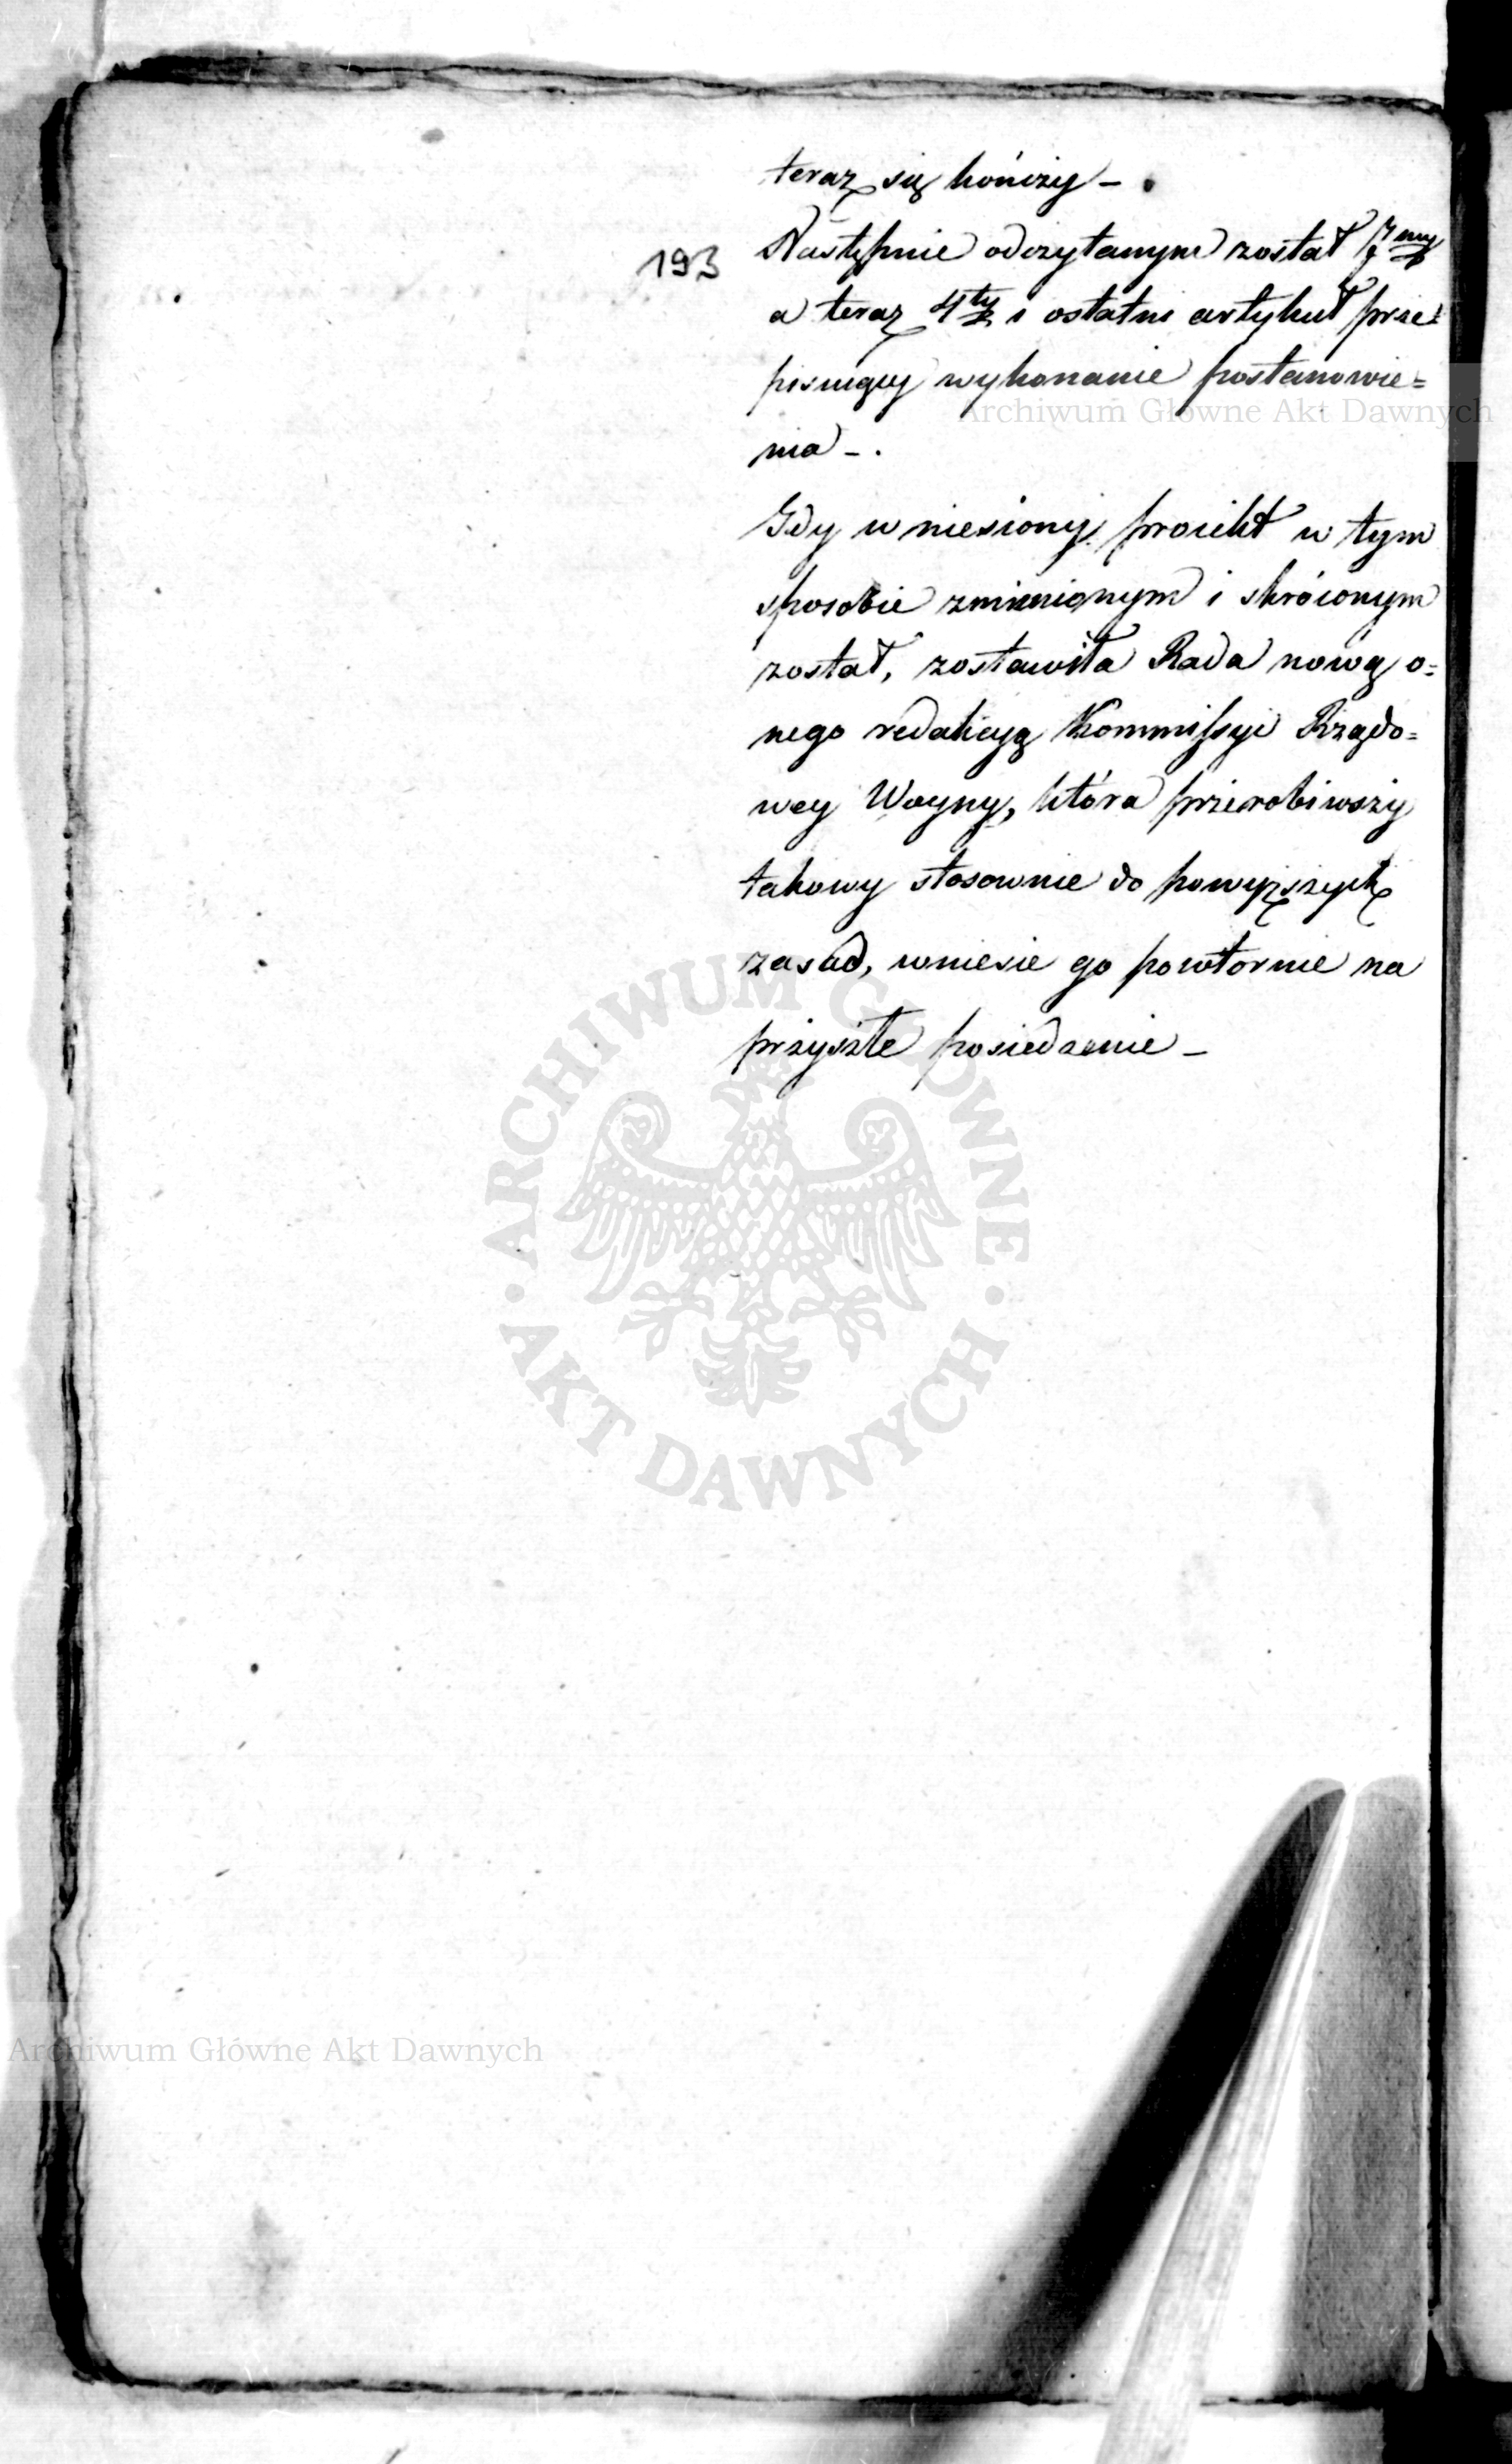 teraz się kończy –.
193
Następnie odczytanym został 7my
a teraz 4ty i ostatni artykuł prze=
pisuiący wykonanie postanowie=
nia –.
Gdy wniesiony proiekt w tym
sposobie zmienionym i skróconym
został, zostawiła Rada nową o=
nego redakcyą Kommissyi Rządo=
wey Woyny, która przerobiwszy
takowy stosownie do powyższych
zasad, wniesie go powtórnie na
przyszłe posiedzenie –
Archiwum Główne Akt Dawnych
ARCHIWUM GŁÓWNE
AKT DAWNYCH
Archiwum Główne Akt Dawnych